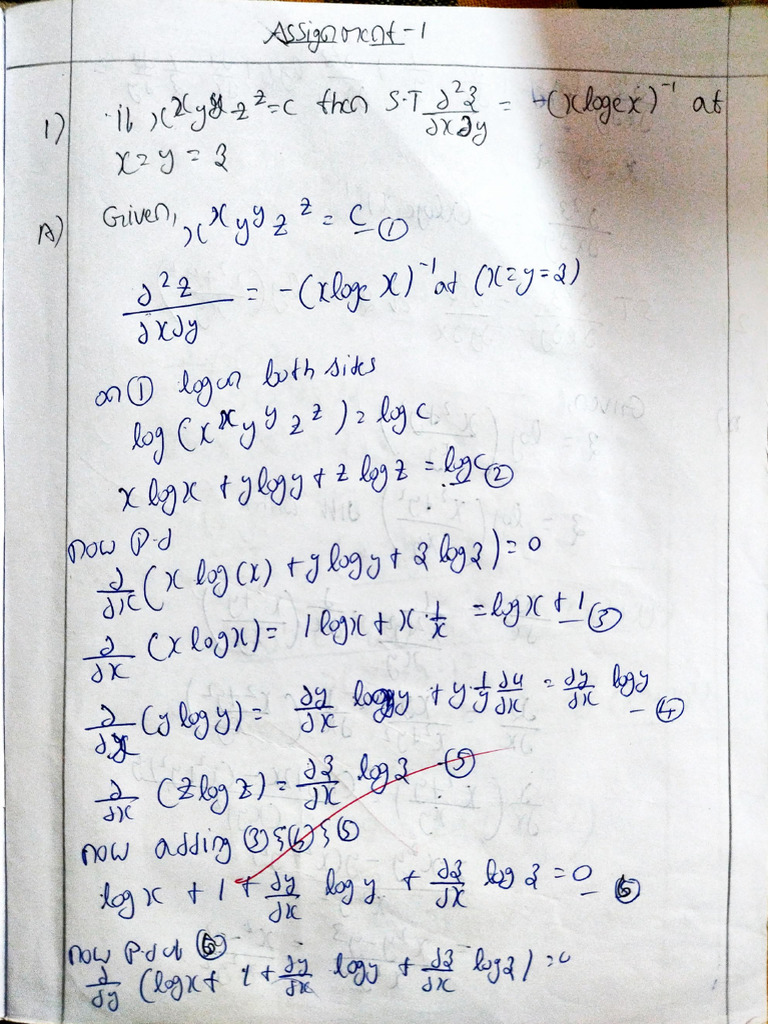 Assignment-1
1) if x^x y^y z^z = c then S.T ∂²z/∂x∂y = -(x log e x)^-1 at
x = y = z
A) Given, x^x y^y z^z = c - ①
∂²z/∂x∂y = -(x log e x)^-1 at (x=y=z)
on ① log on both sides
log (x^x y^y z^z) = log c
x log x + y log y + z log z = log c - ②
now P.d
∂/∂x (x log(x) + y log y + z log z) = 0
∂/∂x (x log x) = 1 log x + x · 1/x = log x + 1 - ③
∂/∂x (y log y) = ∂y/∂x log y + y · 1/y ∂y/∂x = ∂y/∂x log y - ④
∂/∂x (z log z) = ∂z/∂x log z - ⑤
now adding ③ & ④ & ⑤
log x + 1 + ∂y/∂x log y + ∂z/∂x log z = 0 - ⑥
now P.d of ⑥
∂/∂y (log x + 1 + ∂y/∂x log y + ∂z/∂x log z) = 0